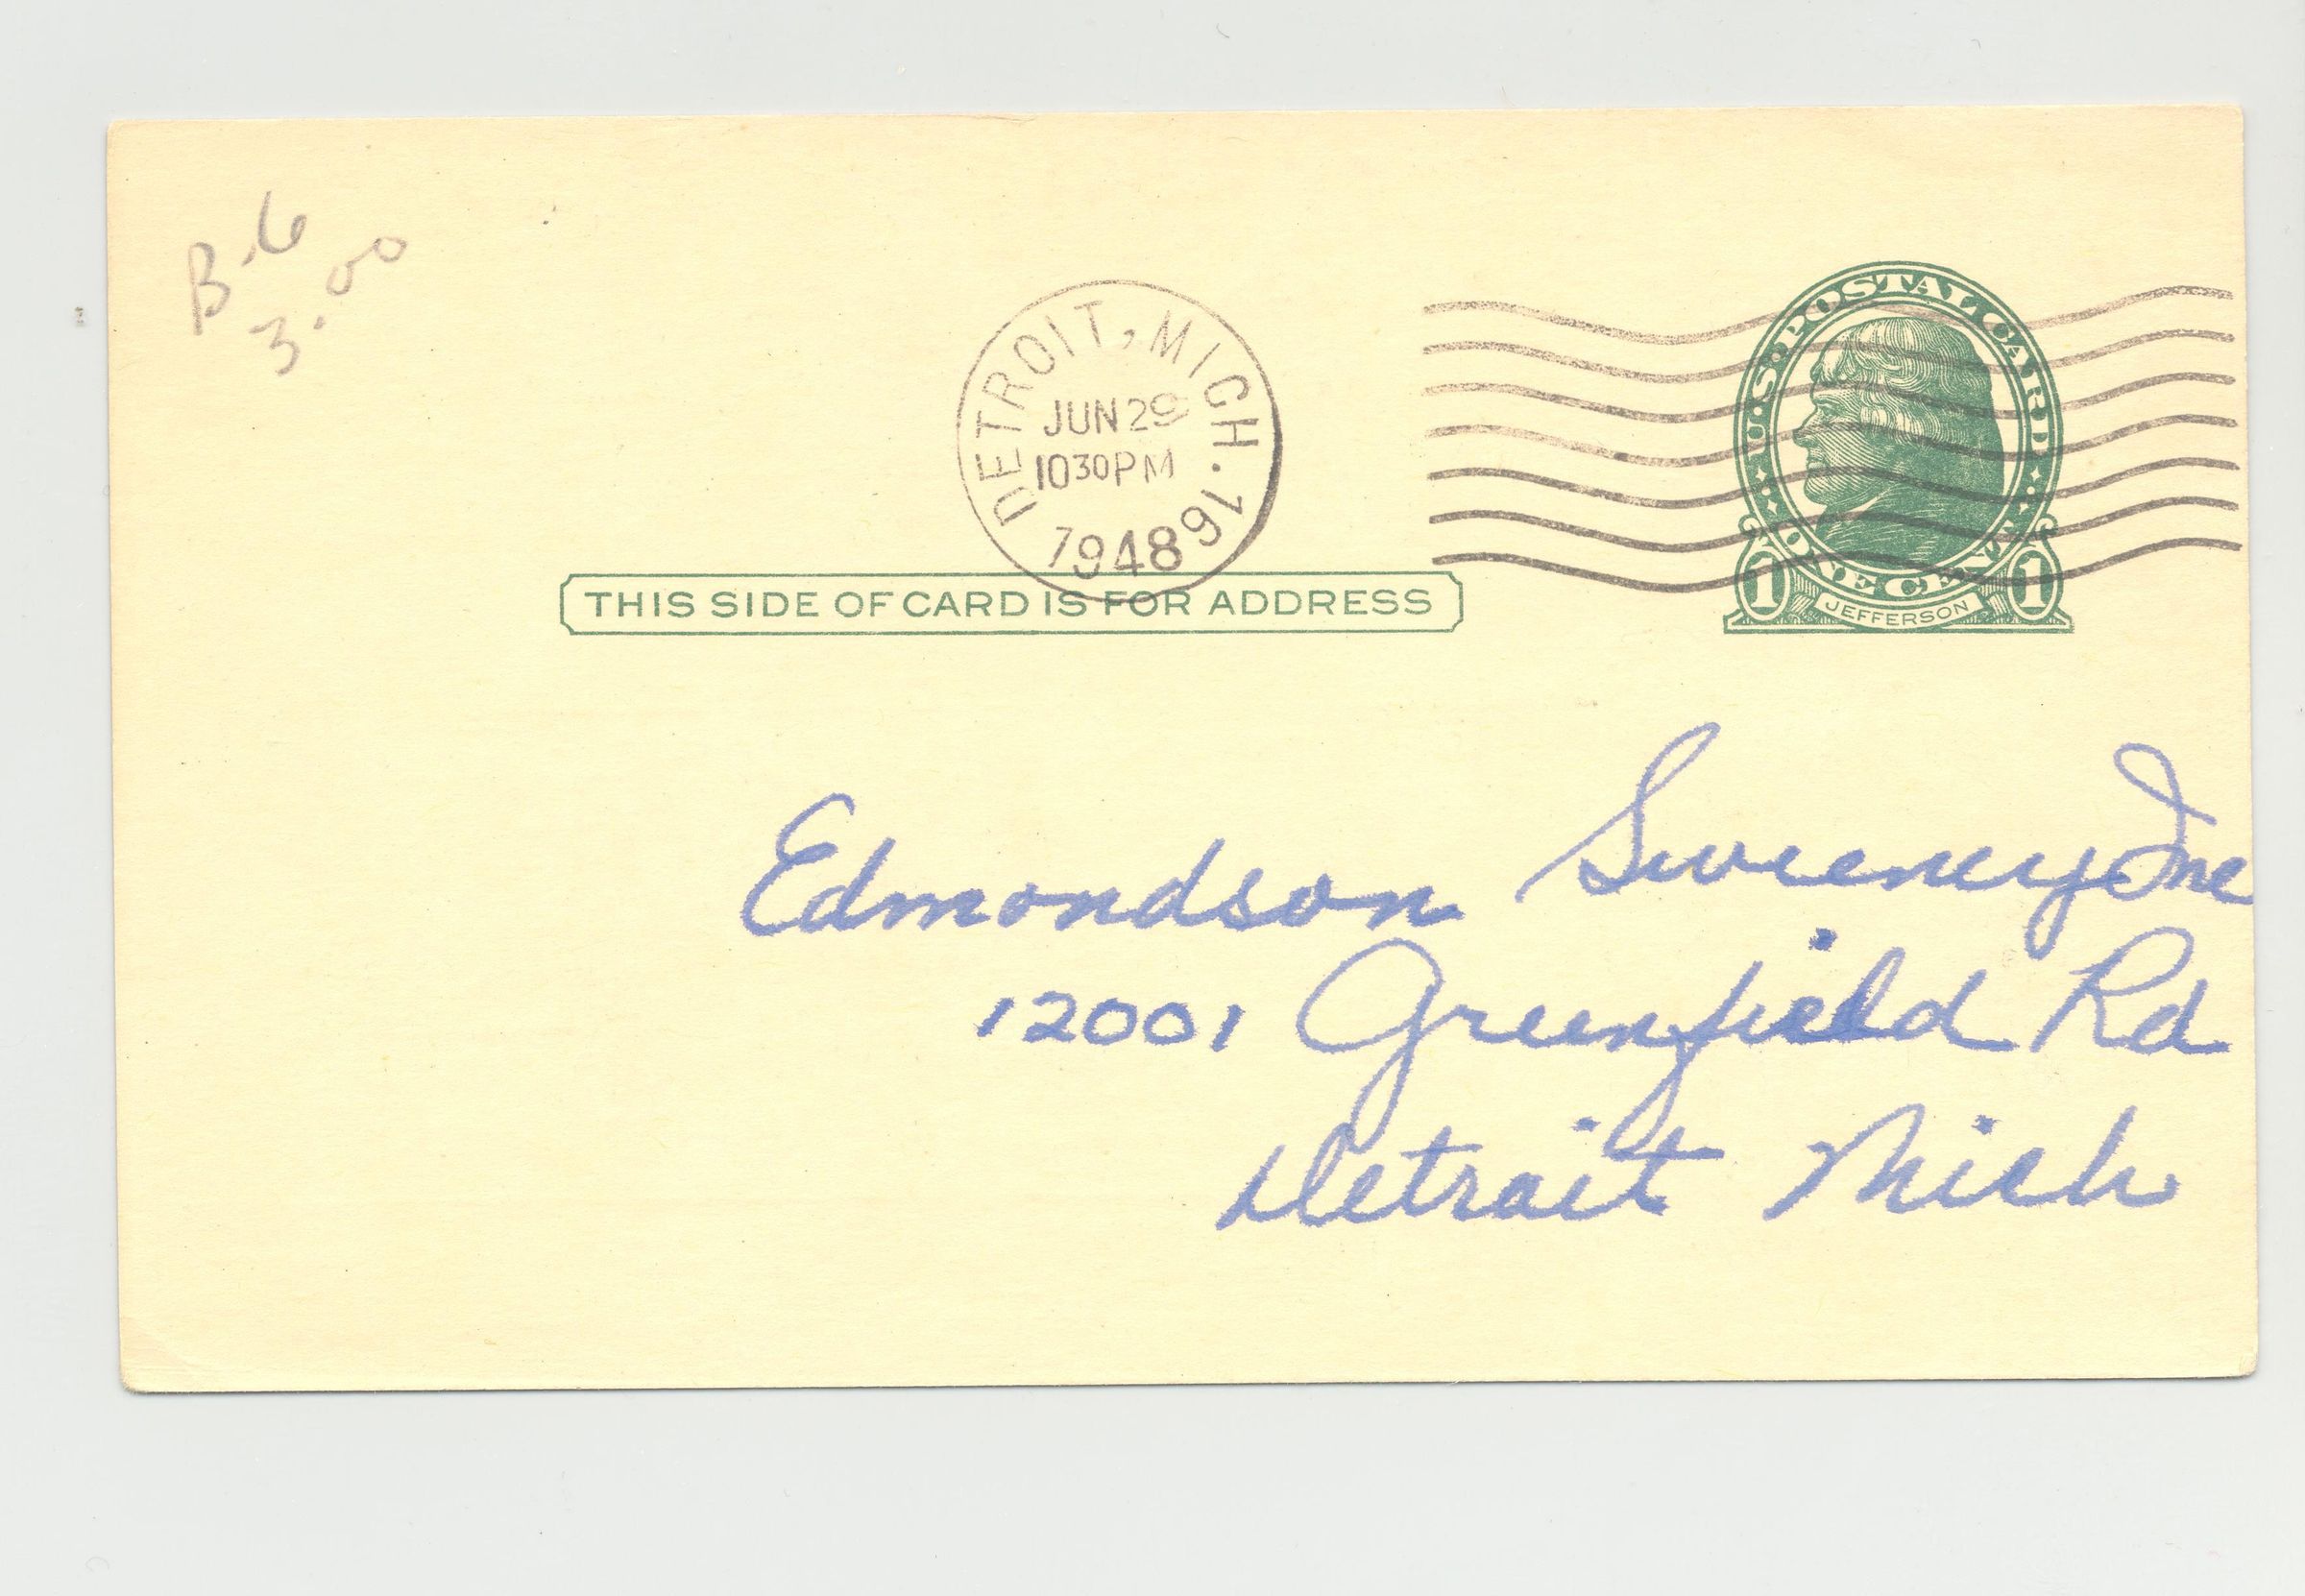 B-6
3.00
DETROIT, MICH. 19
JUN 29
10 30 PM
1948
U.S. POSTAL CARD
ONE CENT
1 1
JEFFERSON
THIS SIDE OF CARD IS FOR ADDRESS
Edmondson Sweeney Inc
12001 Greenfield Rd
Detroit Mich